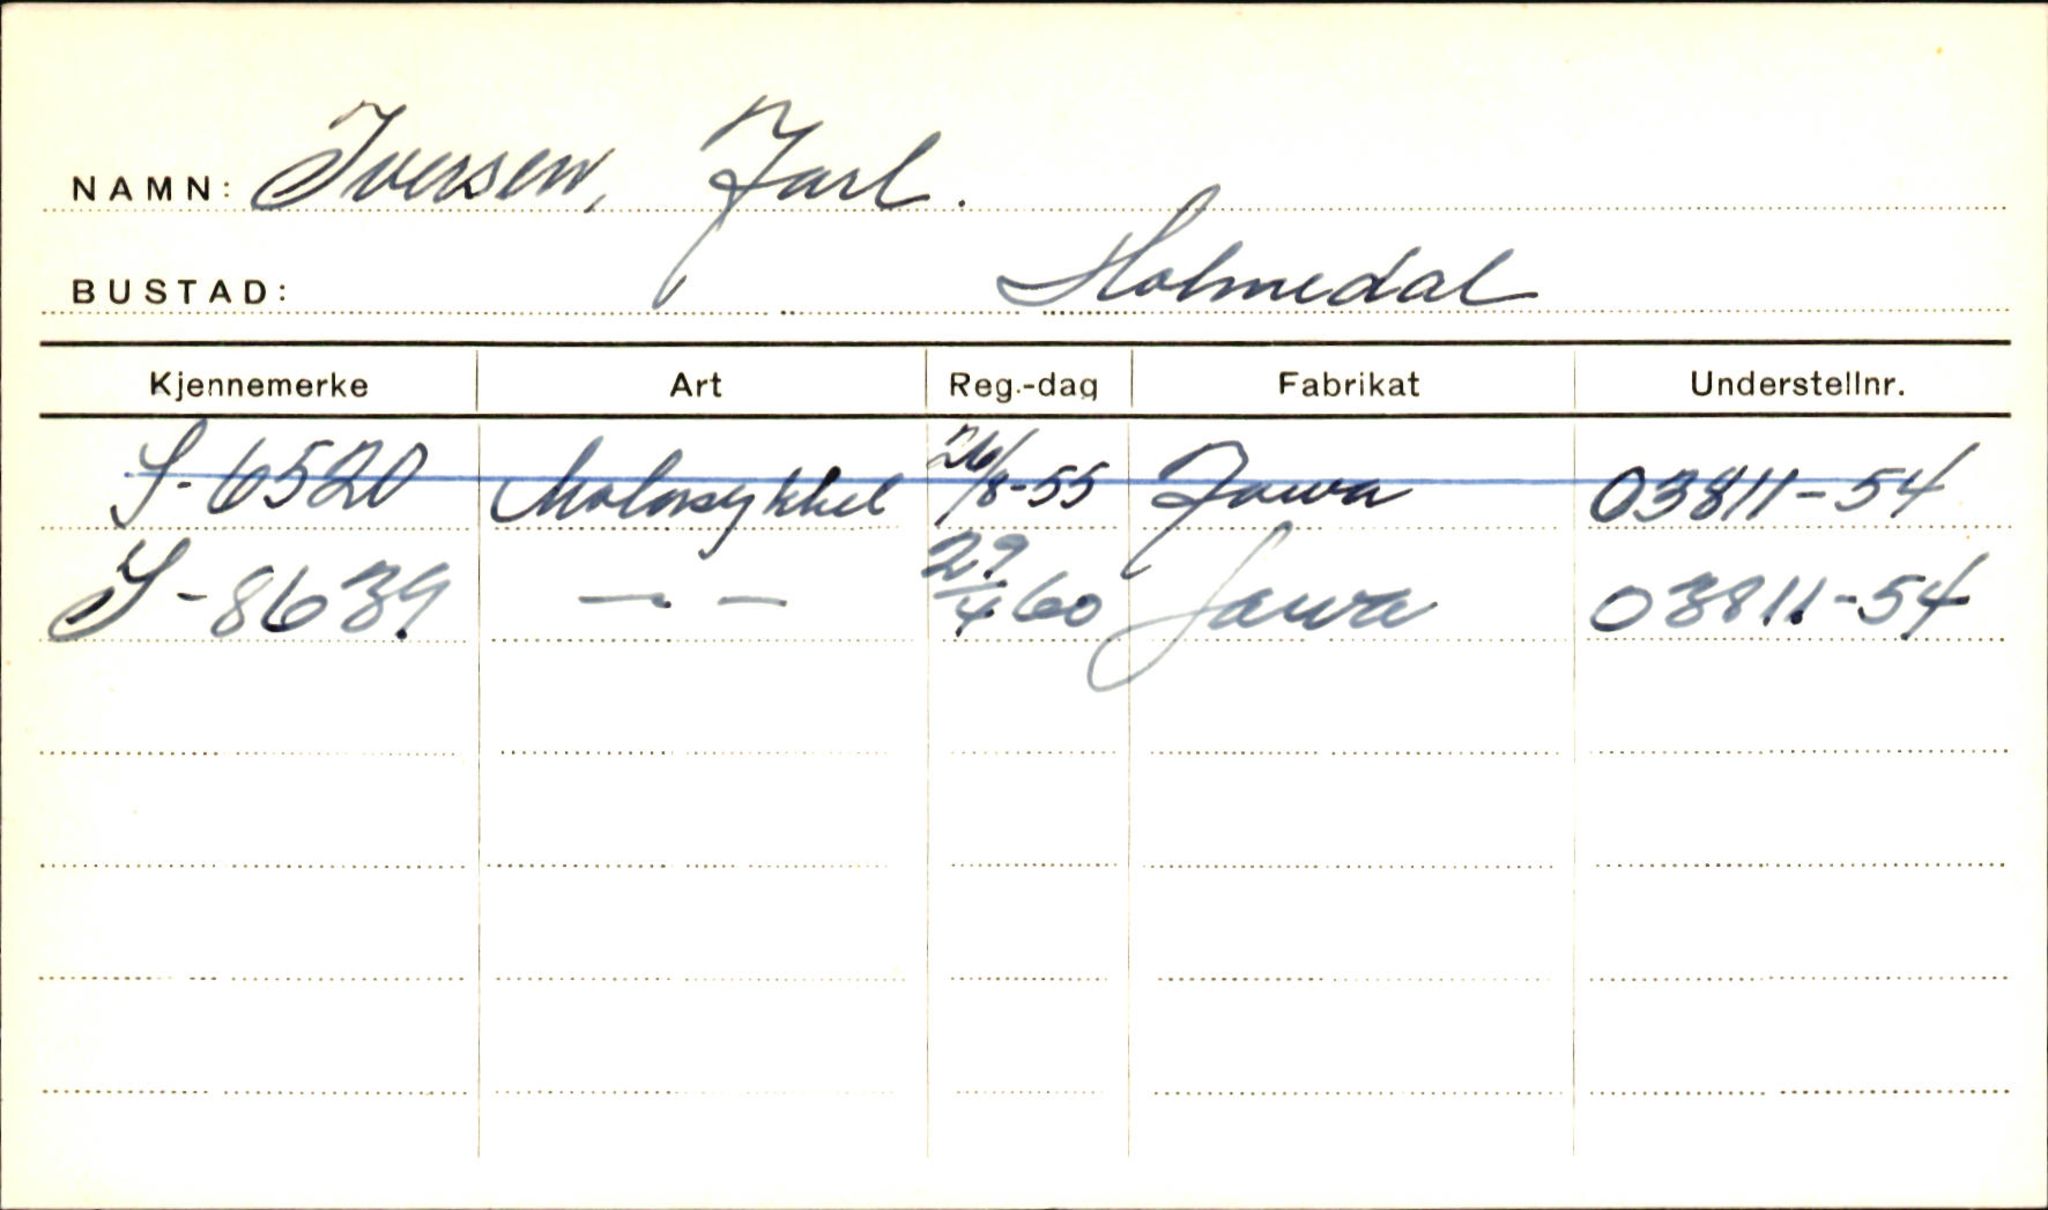 NAMN: Iversen, Jarl.
BUSTAD: Holmedal
Kjennemerke Art Reg.-dag Fabrikat Understellnr.
S-6520 Motorsykkel 26/8-55 Jawa 03811-54
S-8639 — — 29/4 60 Jawa 03811-54